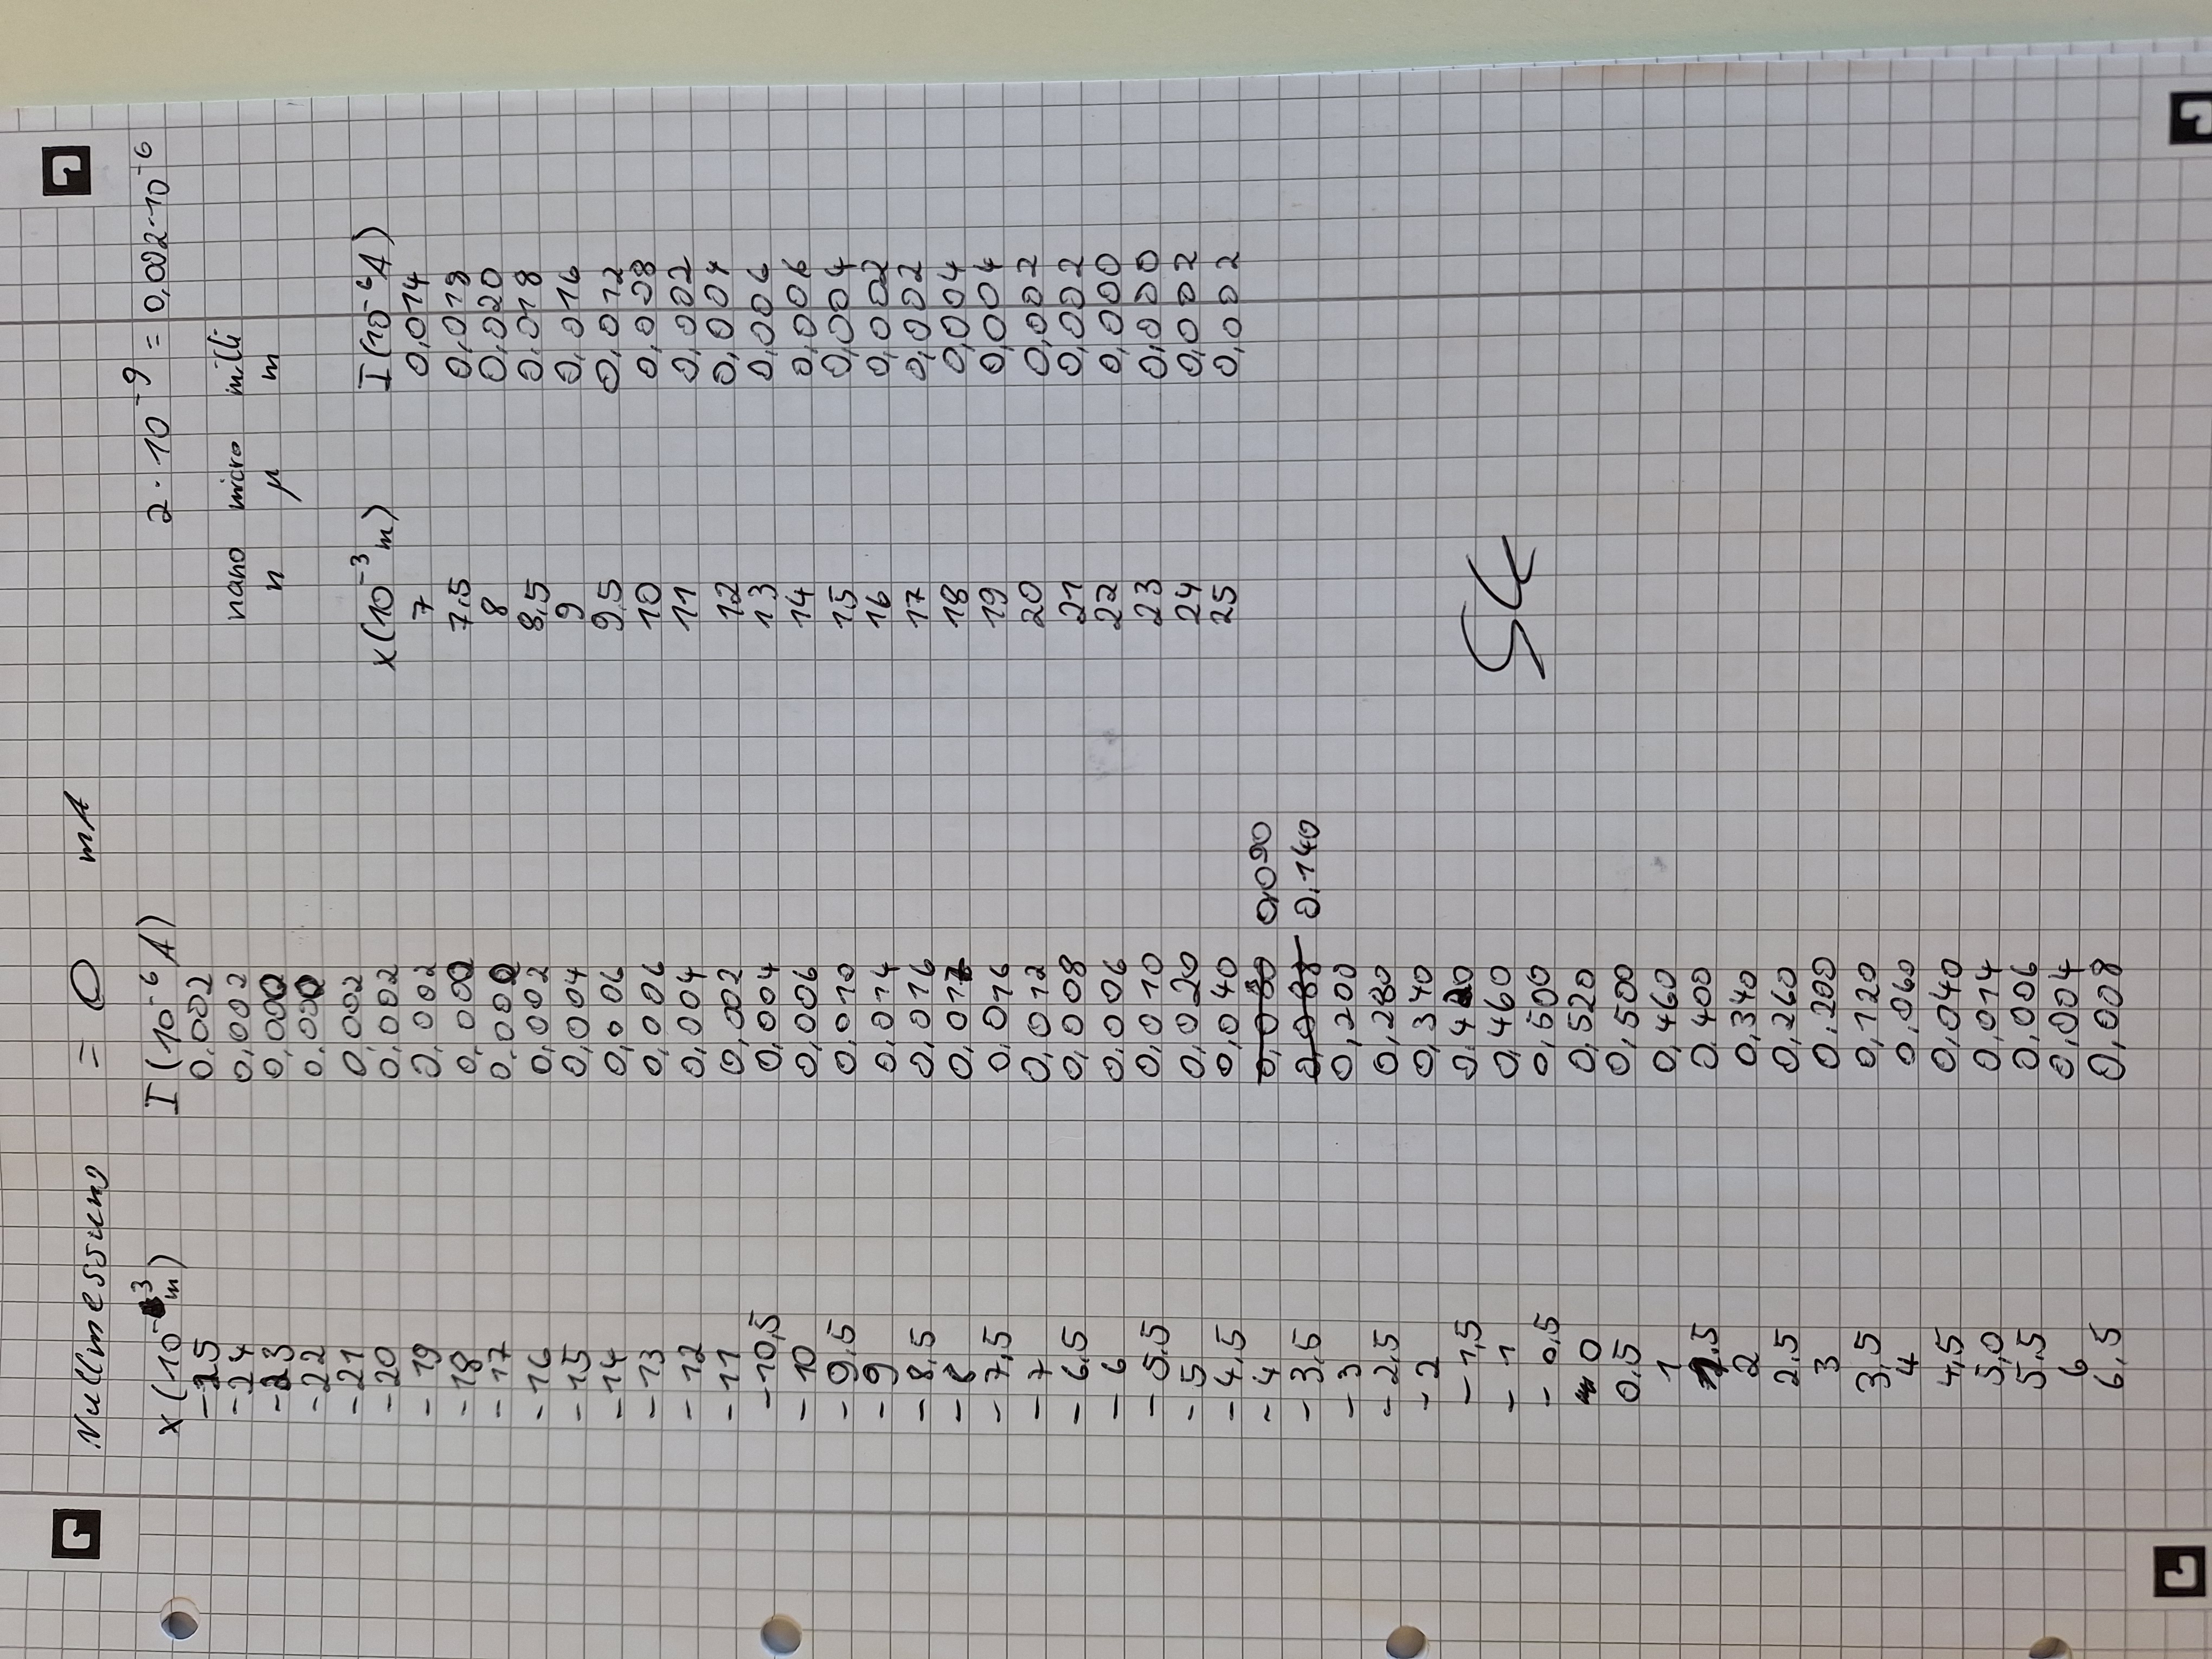 Nullmessung = 0 mA
x (10⁻³ m) I (10⁻⁶ A)
-25 0,002
-24 0,002
-23 0,000
-22 0,000
-21 0,002
-20 0,002
-19 0,002
-18 0,000
-17 0,000
-16 0,002
-15 0,004
-14 0,006
-13 0,006
-12 0,004
-11 0,002
-10,5 0,004
-10 0,006
-9,5 0,010
-9 0,014
-8,5 0,016
-8 0,017
-7,5 0,016
-7 0,012
-6,5 0,008
-6 0,006
-5,5 0,010
-5 0,020
-4,5 0,040
-4 0,090
-3,5 0,088 0,140
-3 0,200
-2,5 0,280
-2 0,340
-1,5 0,420
-1 0,460
-0,5 0,500
0 0,520
0,5 0,500
1 0,460
1,5 0,400
2 0,340
2,5 0,260
3 0,200
3,5 0,120
4 0,060
4,5 0,040
5,0 0,014
5,5 0,006
6 0,004
6,5 0,008
2 · 10⁻⁹ = 0,002 · 10⁻⁶
nano micro milli
n µ m
x (10⁻³ m) I (10⁻⁶ A)
7 0,014
7,5 0,019
8 0,020
8,5 0,018
9 0,016
9,5 0,012
10 0,008
11 0,002
12 0,004
13 0,006
14 0,006
15 0,004
16 0,002
17 0,002
18 0,004
19 0,004
20 0,002
21 0,002
22 0,000
23 0,000
24 0,002
25 0,002